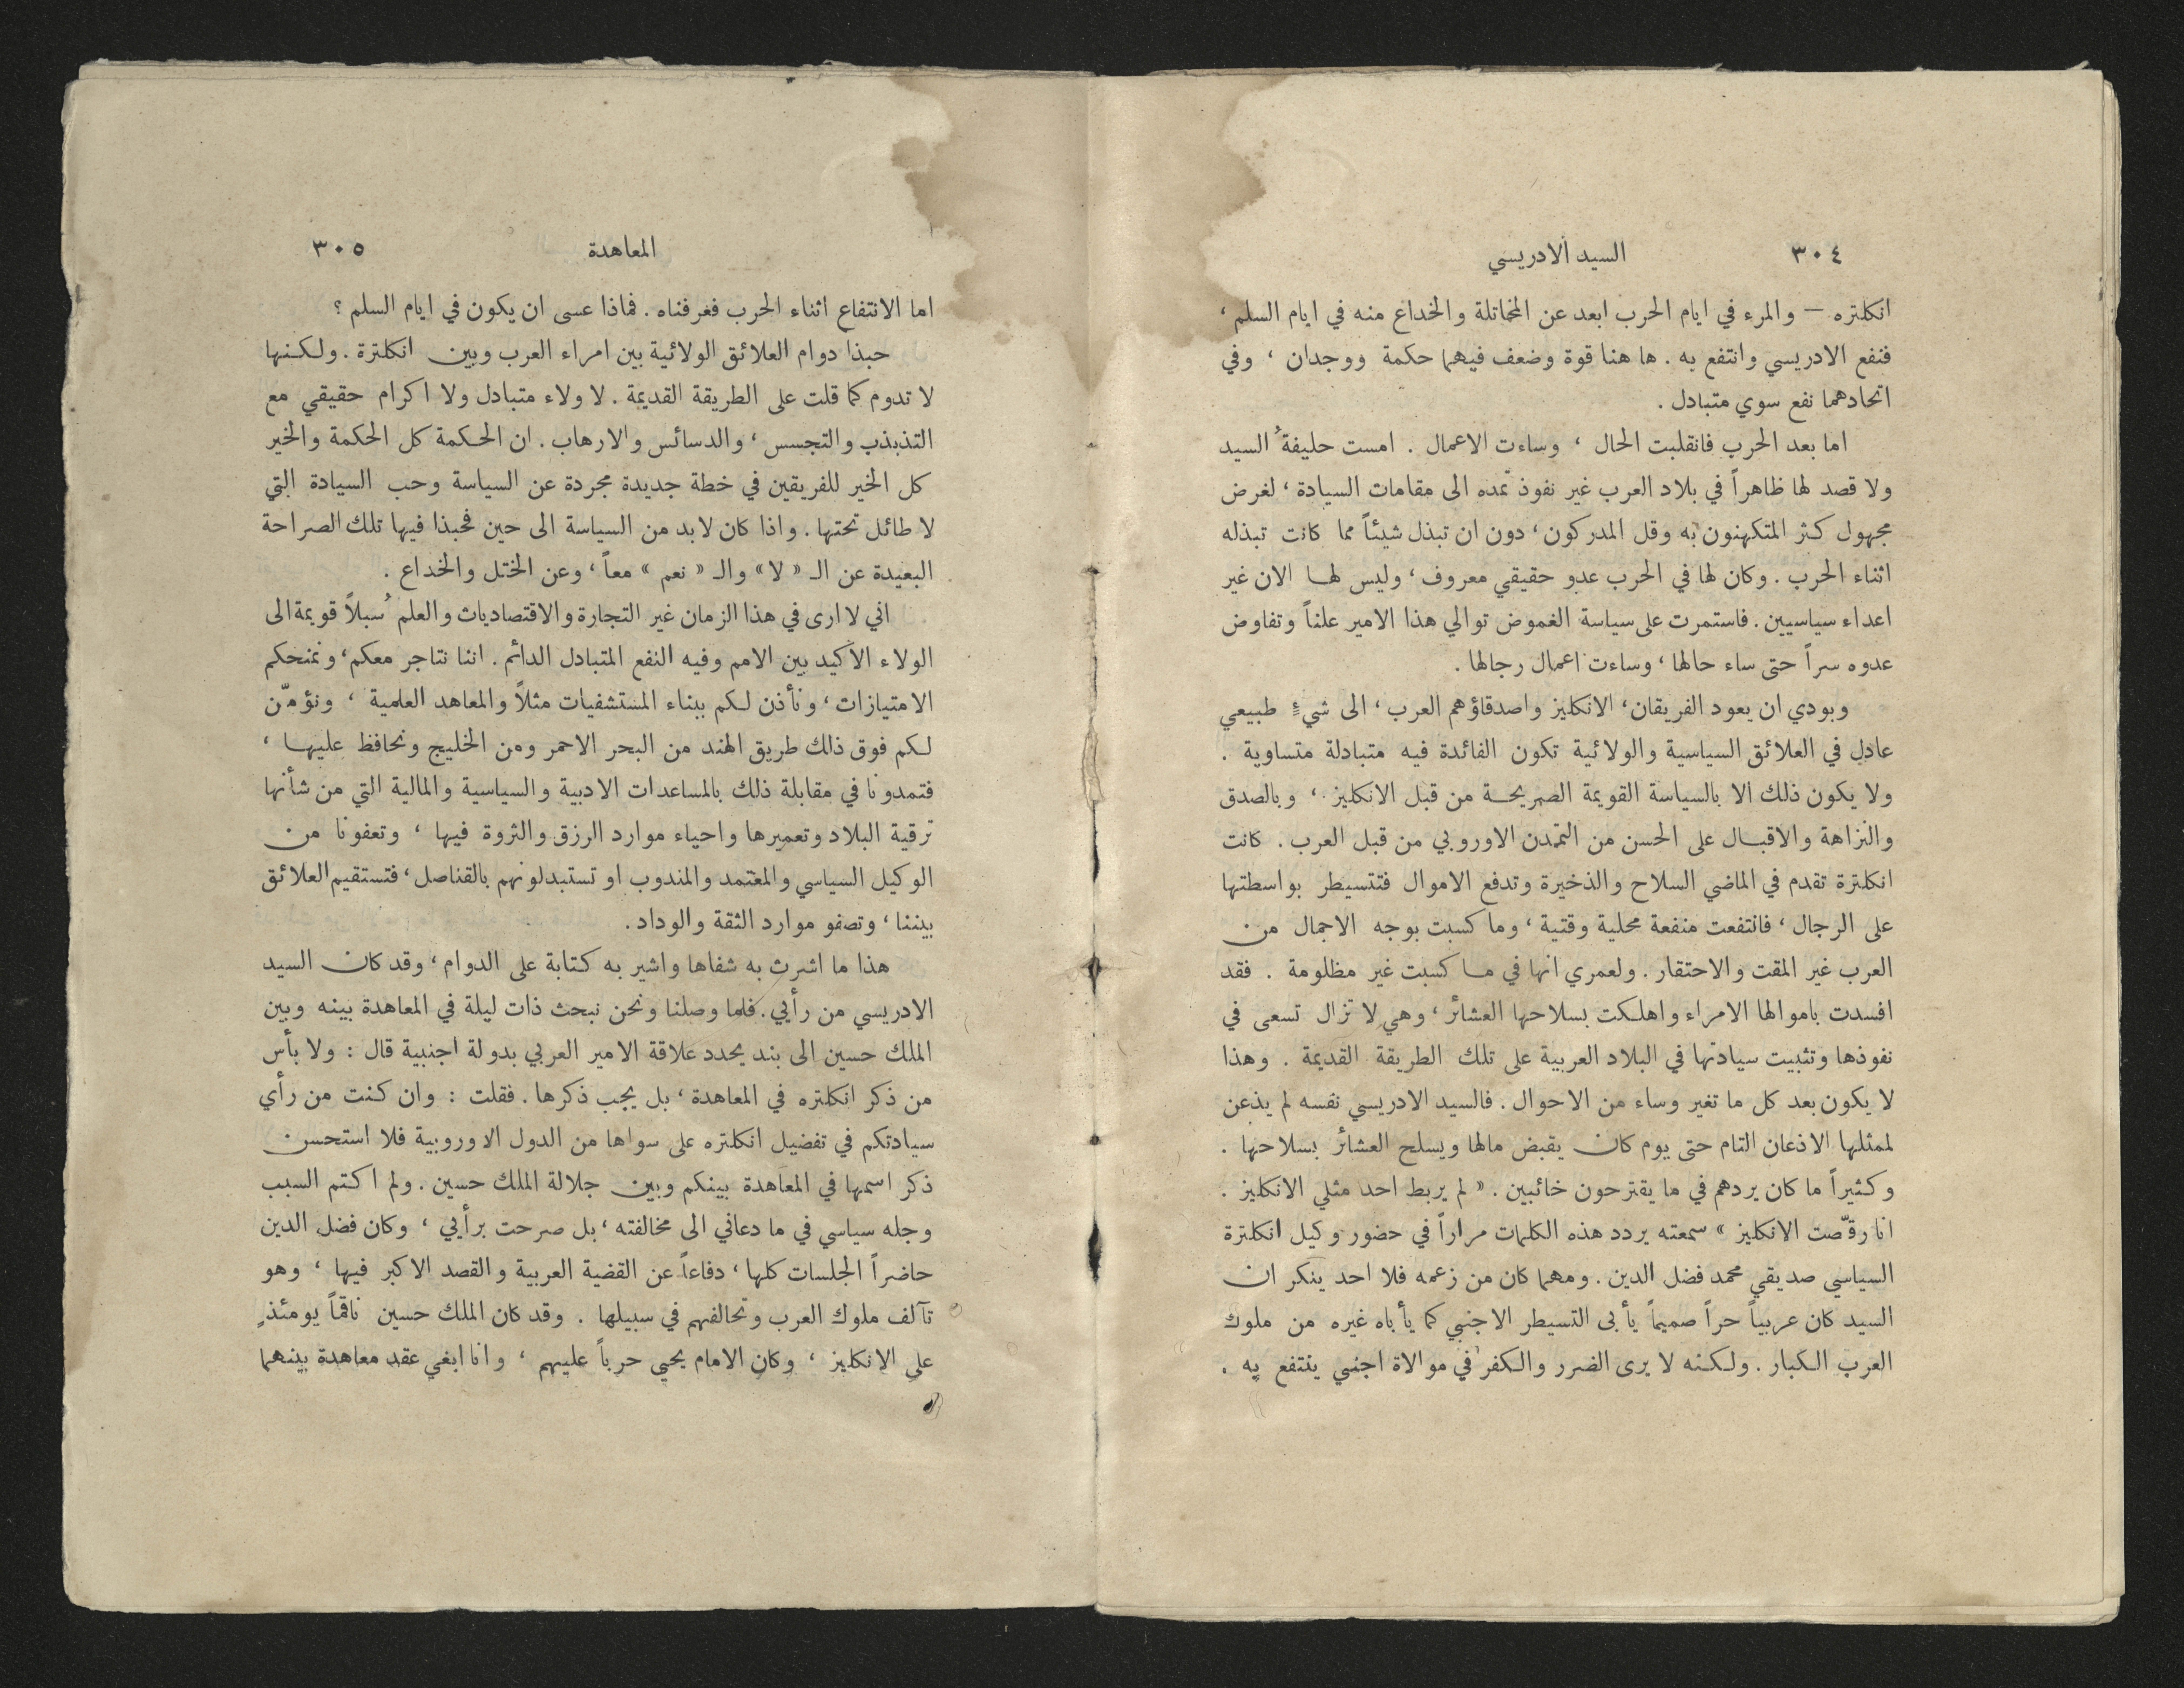 ٣٠٤ السيد الادريسي
انكلتره — والمرء في ايام الحرب ابعد عن المخاتلة والخداع منه في ايام السلم ،
فنفع الادريسي وانتفع به . ها هنا قوة وضعف فيهما حكمة ووجدان ، وفي
اتحادهما نفع سوي متبادل .
اما بعد الحرب فانقلبت الحال ، وساءت الاعمال . امست حليفةُ السيد
ولا قصد لها ظاهراً في بلاد العرب غير نفوذ تمده الى مقامات السيادة ، لغرض
مجهول كثر المتكهنون به وقل المدركون ، دون ان تبذل شيئاً مما كانت تبذله
اثناء الحرب . وكان لها في الحرب عدو حقيقي معروف ، وليس لها الان غير
اعداء سياسيين . فاستمرت على سياسة الغموض توالي هذا الامير علناً وتفاوض
عدوه سراً حتى ساء حالها ، وساءت اعمال رجالها .
وبودي ان يعود الفريقان ، الانكليز واصدقاؤهم العرب ، الى شيءٍ طبيعي
عادل في العلائق السياسية والولائية تكون الفائدة فيه متبادلة متساوية .
ولا يكون ذلك الا بالسياسة القويمة الصريحة من قبل الانكليز ، وبالصدق
والنزاهة والاقبال على الحسن من التمدن الاوروبي من قبل العرب . كانت
انكلترة تقدم في الماضي السلاح والذخيرة وتدفع الاموال فتتسيطر بواسطتها
على الرجال ، فانتفعت منفعة محلية وقتية ، وما كسبت بوجه الاجمال من
العرب غير المقت والاحتقار . ولعمري انها في ما كسبت غير مظلومة . فقد
افسدت باموالها الامراء واهلكت بسلاحها العشائر ، وهي لا تزال تسعى في
نفوذها وتثبيت سيادتها في البلاد العربية على تلك الطريقة القديمة . وهذا
لا يكون بعد كل ما تغير وساء من الاحوال . فالسيد الادريسي نفسه لم يذعن
لممثلها الاذعان التام حتى يوم كان يقبض مالها ويسلح العشائر بسلاحها .
وكثيراً ما كان يردهم في ما يقترحون خائبين . « لم يربط احد مثلي الانكليز .
انا رقّصت الانكليز » سمعته يردد هذه الكلمات مراراً في حضور وكيل انكلترة
السياسي صديقي محمد فضل الدين . ومهما كان من زعمه فلا احد ينكر ان
السيد كان عربياً حراً صميماً يأبى التسيطر الاجنبي كما يأباه غيره من ملوك
العرب الكبار . ولكنه لا يرى الضرر والكفر في موالاة اجنبي ينتفع به .
المعاهدة ٣٠٥
اما الانتفاع اثناء الحرب فغرفناه . فماذا عسى ان يكون في ايام السلم ؟
حبذا دوام العلائق الولائية بين امراء العرب وبين انكلترة . ولكنها
لا تدوم كما قلت على الطريقة القديمة . لا ولاء متبادل ولا اكرام حقيقي مع
التذبذب والتجسس ، والدسائس والارهاب . ان الحكمة كل الحكمة والخير
كل الخير للفريقين في خطة جديدة مجردة عن السياسة وحب السيادة التي
لا طائل تحتها . واذا كان لا بد من السياسة الى حين فحبذا فيها تلك الصراحة
البعيدة عن الـ « لا » والـ « نعم » معاً ، وعن الختل والخداع .
اني لا ارى في هذا الزمان غير التجارة والاقتصاديات والعلم سُبلاً قويمة الى
الولاء الأكيد بين الامم وفيه النفع المتبادل الدائم . اننا نتاجر معكم ، ونمنحكم
الامتيازات ، ونأذن لكم ببناء المستشفيات مثلاً والمعاهد العلمية ، ونؤمّن
لكم فوق ذلك طريق الهند من البحر الاحمر ومن الخليج ونحافظ عليها ،
فتمدونا في مقابلة ذلك بالمساعدات الادبية والسياسية والمالية التي من شأنها
ترقية البلاد وتعميرها واحياء موارد الرزق والثروة فيها ، وتعفونا من
الوكيل السياسي والمعتمد والمندوب او تستبدلونهم بالقناصل ، فتستقيم العلائق
بيننا ، وتصفو موارد الثقة والوداد .
هذا ما اشرت به شفاها واشير به كتابة على الدوام ، وقد كان السيد
الادريسي من رأيي . فلما وصلنا ونحن نبحث ذات ليلة في المعاهدة بينه وبين
الملك حسين الى بند يحدد علاقة الامير العربي بدولة اجنبية قال : ولا بأس
من ذكر انكلتره في المعاهدة ، بل يجب ذكرها . فقلت : وان كنت من رأي
سيادتكم في تفضيل انكلتره على سواها من الدول الاوروبية فلا استحسن
ذكر اسمها في المعاهدة بينكم وبين جلالة الملك حسين . ولم اكتم السبب
وجله سياسي في ما دعاني الى مخالفته ، بل صرحت برأيي ، وكان فضل الدين
حاضراً الجلسات كلها ، دفاعاً عن القضية العربية والقصد الاكبر فيها ، وهو
تآلف ملوك العرب وتحالفهم في سبيلها . وقد كان الملك حسين ناقماً يومئذٍ
على الانكليز ، وكان الامام يحيى حرباً عليهم ، وانا ابغي عقد معاهدة بينهما